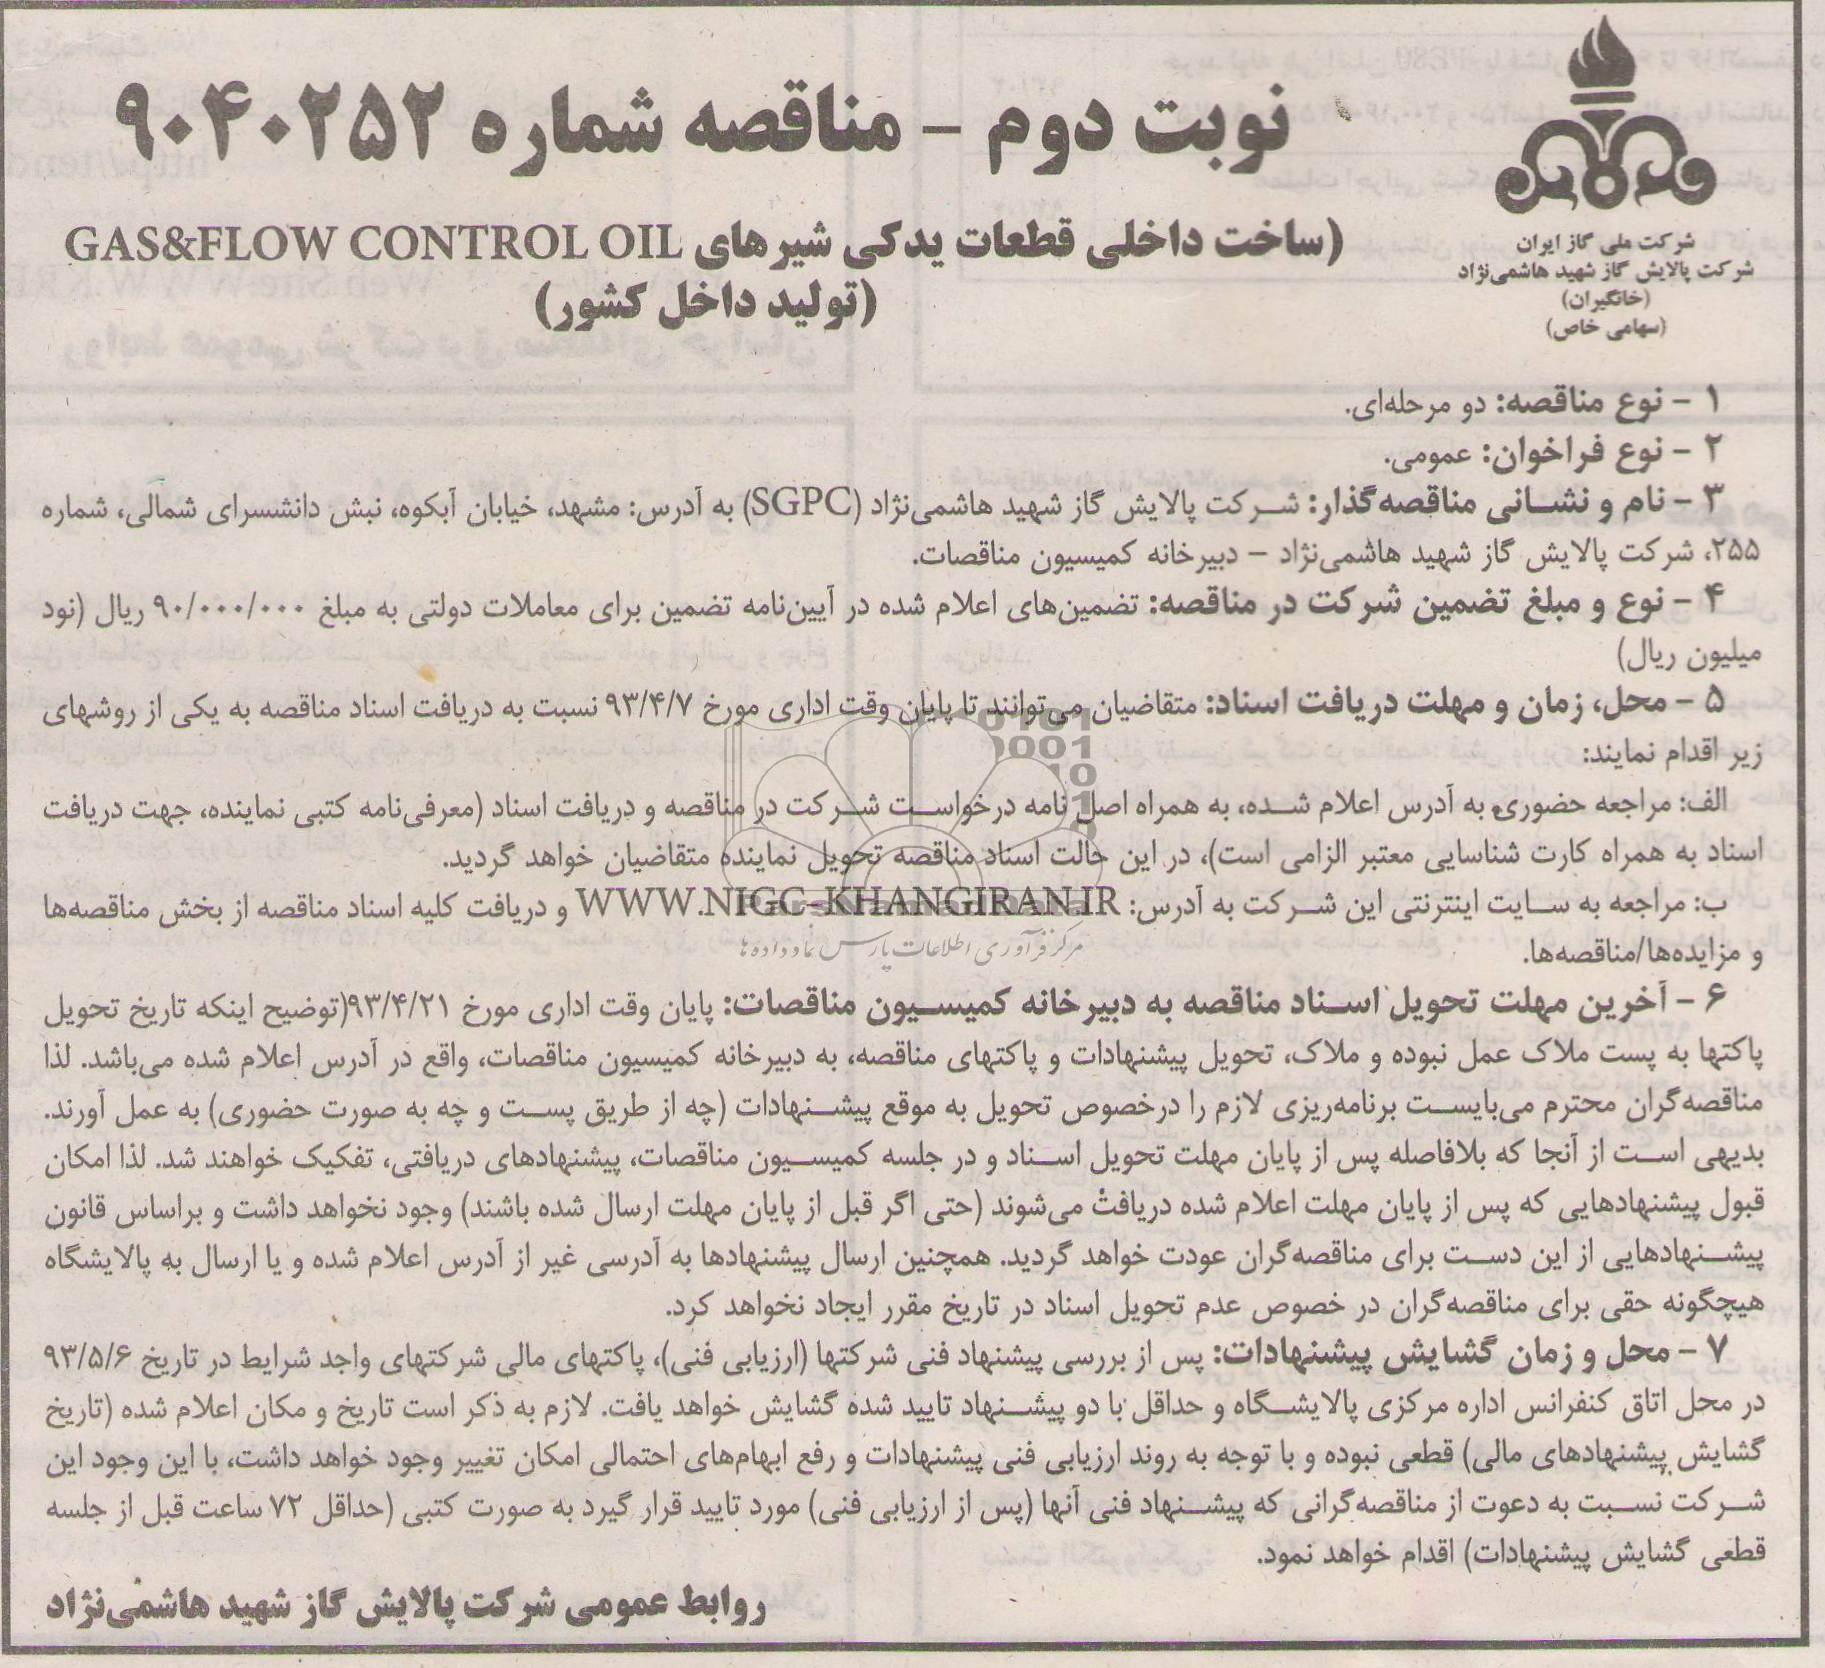 شرکت ملی گاز ایران
شرکت پالایش گاز شهید هاشمی‌نژاد
(خانگیران)
(سهامی خاص)
نوبت دوم - مناقصه شماره ۹۰۴۰۲۵۲
(ساخت داخلی قطعات یدکی شیرهای GAS&FLOW CONTROL OIL
(تولید داخل کشور)
۱ - نوع مناقصه: دو مرحله‌ای.
۲ - نوع فراخوان: عمومی.
۳ - نام و نشانی مناقصه‌گذار: شرکت پالایش گاز شهید هاشمی‌نژاد (SGPC) به آدرس: مشهد، خیابان آبکوه، نبش دانشسرای شمالی، شماره
۲۵۵، شرکت پالایش گاز شهید هاشمی‌نژاد – دبیرخانه کمیسیون مناقصات.
۴ - نوع و مبلغ تضمین شرکت در مناقصه: تضمین‌های اعلام شده در آیین‌نامه تضمین برای معاملات دولتی به مبلغ ۹۰/۰۰۰/۰۰۰ ریال (نود
میلیون ریال)
۵ - محل، زمان و مهلت دریافت اسناد: متقاضیان می‌توانند تا پایان وقت اداری مورخ ۹۳/۴/۷ نسبت به دریافت اسناد مناقصه به یکی از روشهای
زیر اقدام نمایند:
الف: مراجعه حضوری به آدرس اعلام شده، به همراه اصل نامه درخواست شرکت در مناقصه و دریافت اسناد (معرفی‌نامه کتبی نماینده، جهت دریافت
اسناد به همراه کارت شناسایی معتبر الزامی است)، در این حالت اسناد مناقصه تحویل نماینده متقاضیان خواهد گردید.
ب: مراجعه به سایت اینترنتی این شرکت به آدرس: WWW.NIGC-KHANGIRAN.IR و دریافت کلیه اسناد مناقصه از بخش مناقصه‌ها
و مزایده‌ها/مناقصه‌ها.
مرکز فرآوری اطلاعات پارس نماد داده‌ها
۶ - آخرین مهلت تحویل اسناد مناقصه به دبیرخانه کمیسیون مناقصات: پایان وقت اداری مورخ ۹۳/۴/۲۱(توضیح اینکه تاریخ تحویل
پاکتها به پست ملاک عمل نبوده و ملاک، تحویل پیشنهادات و پاکتهای مناقصه، به دبیرخانه کمیسیون مناقصات، واقع در آدرس اعلام شده می‌باشد. لذا
مناقصه‌گران محترم می‌بایست برنامه‌ریزی لازم را درخصوص تحویل به موقع پیشنهادات (چه از طریق پست و چه به صورت حضوری) به عمل آورند.
بدیهی است از آنجا که بلافاصله پس از پایان مهلت تحویل اسناد و در جلسه کمیسیون مناقصات، پیشنهادهای دریافتی، تفکیک خواهند شد. لذا امکان
قبول پیشنهادهایی که پس از پایان مهلت اعلام شده دریافت می‌شوند (حتی اگر قبل از پایان مهلت ارسال شده باشند) وجود نخواهد داشت و براساس قانون
پیشنهادهایی از این دست برای مناقصه‌گران عودت خواهد گردید. همچنین ارسال پیشنهادها به آدرسی غیر از آدرس اعلام شده و یا ارسال به پالایشگاه
هیچگونه حقی برای مناقصه‌گران در خصوص عدم تحویل اسناد در تاریخ مقرر ایجاد نخواهد کرد.
۷ - محل و زمان گشایش پیشنهادات: پس از بررسی پیشنهاد فنی شرکتها (ارزیابی فنی)، پاکتهای مالی شرکتهای واجد شرایط در تاریخ ۹۳/۵/۶
در محل اتاق کنفرانس اداره مرکزی پالایشگاه و حداقل با دو پیشنهاد تایید شده گشایش خواهد یافت. لازم به ذکر است تاریخ و مکان اعلام شده (تاریخ
گشایش پیشنهادهای مالی) قطعی نبوده و با توجه به روند ارزیابی فنی پیشنهادات و رفع ابهام‌های احتمالی امکان تغییر وجود خواهد داشت، با این وجود این
شرکت نسبت به دعوت از مناقصه‌گرانی که پیشنهاد فنی آنها (پس از ارزیابی فنی) مورد تایید قرار گیرد به صورت کتبی (حداقل ۷۲ ساعت قبل از جلسه
قطعی گشایش پیشنهادات) اقدام خواهد نمود.
روابط عمومی شرکت پالایش گاز شهید هاشمی‌نژاد